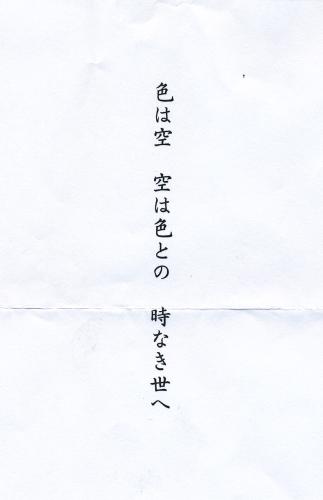 色は空　空は色との　時なき世へ